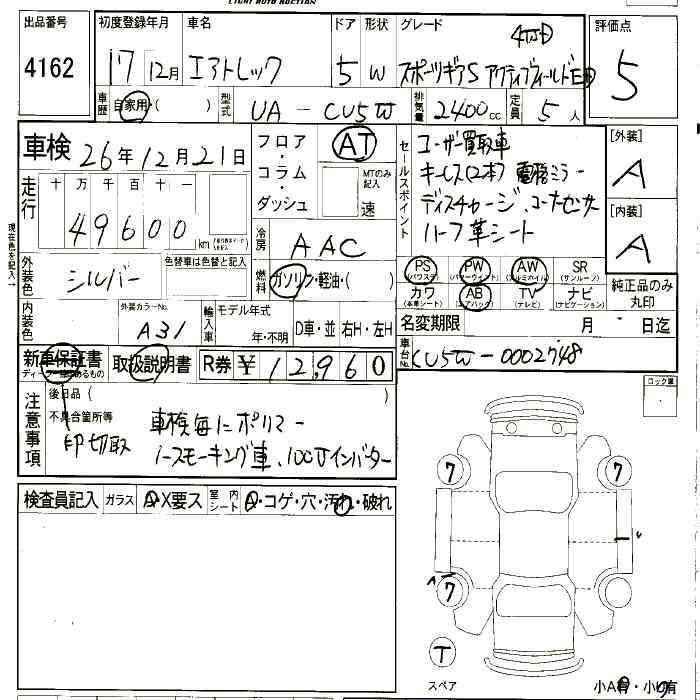 LIGHT AUTO AUCTION
出品番号 初度登録年月 車名 ドア 形状 グレード 評価点
4WD
4162 17 12月 エアトレック 5 W スポーツギアS アクティブフィールドED 5
車歴 自家用・( ) 型式 UA-CU5W 排気量 2400cc 定員 5人
車検 26年12月21日
フロア・コラム・ダッシュ AT MTのみ記入 速
セールスポイント
ユーザー買取車
キーレス(2本) 電格ミラー
ディスチャージ、コーナーセンサー
ハーフ革シート
[外装] A
[内装] A
走行 十 万 千 百 十 一
49600 km
現在色を記入→
冷房 AAC
燃料 ガソリン・軽油・( )
外装色 シルバー 色替車は色替と記入
PS (パワステ) PW (パワーウィンド) AW (アルミホイル) SR (サンルーフ)
カワ (本革シート) AB (エアバッグ) TV (テレビ) ナビ (ナビゲーション)
純正品のみ丸印
内装色 外装カラーNo. A31 輸入車 モデル年式 年・不明 D車・並 右H・左H
名変期限 月 日迄
新車保証書 ディーラー印のあるもの 取扱説明書 R券 ¥12,960
車台No. CU5W-0002748
ロック車
注意事項
後日品( )
不具合箇所等
印切取
車検毎にポリマー
ノースモーキング車、100Vインバーター
検査員記入 ガラス A・X要ス 室内シート A・コゲ・穴・汚れ・破れ
7 7
7 7
T
スペア
小A有・小U有